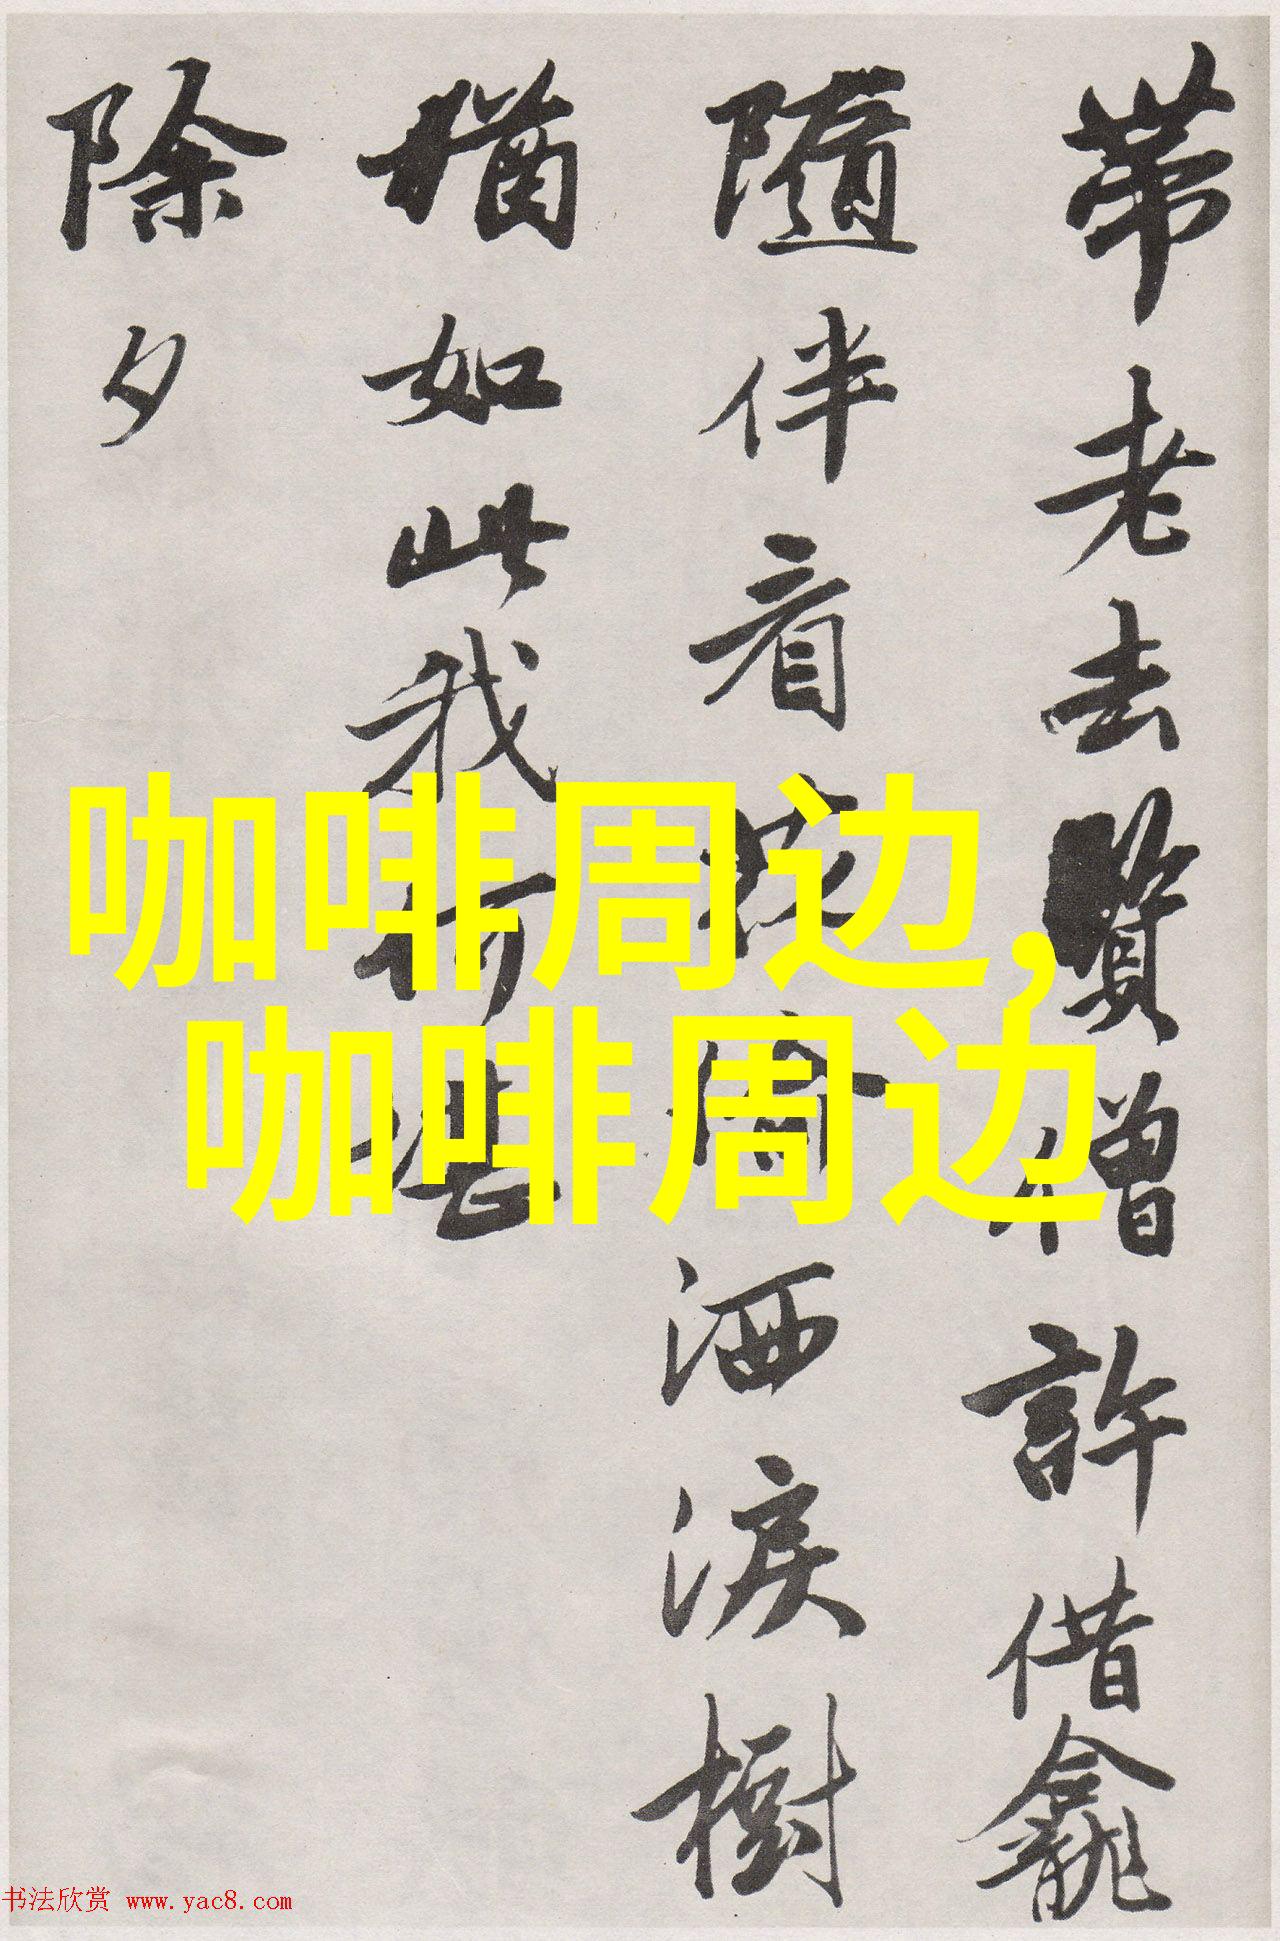 帶老去賢僧許借龕
隨伴看偷洒淚樹
猶如此我何堪
除夕
咖啡周边,
咖啡周边
书法欣赏 www.yac8.com